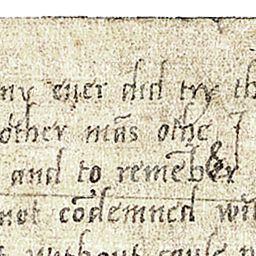 ny euer did try th
other mās othe I
and to remēber
not cōdemned wi
t without cause